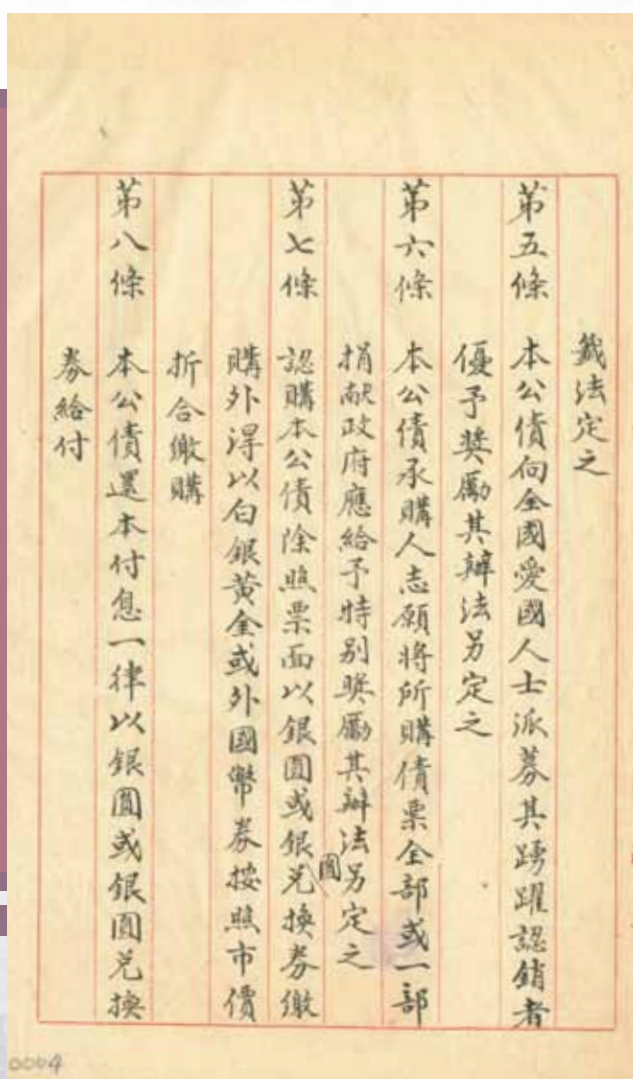 籤法定之
第五條　本公債向全國愛國人士派募其踴躍認銷者
優予獎勵其辦法另定之
第六條　本公債承購人志願將所購債票全部或一部
捐献政府應給予特別獎勵其辦法另定之
第七條　認購本公債除照票面以銀圓或銀圓兑換券繳
購外得以白銀黄金或外國幣券按照市價
折合繳購
第八條　本公債還本付息一律以銀圓或銀圓兑換
券給付
0004